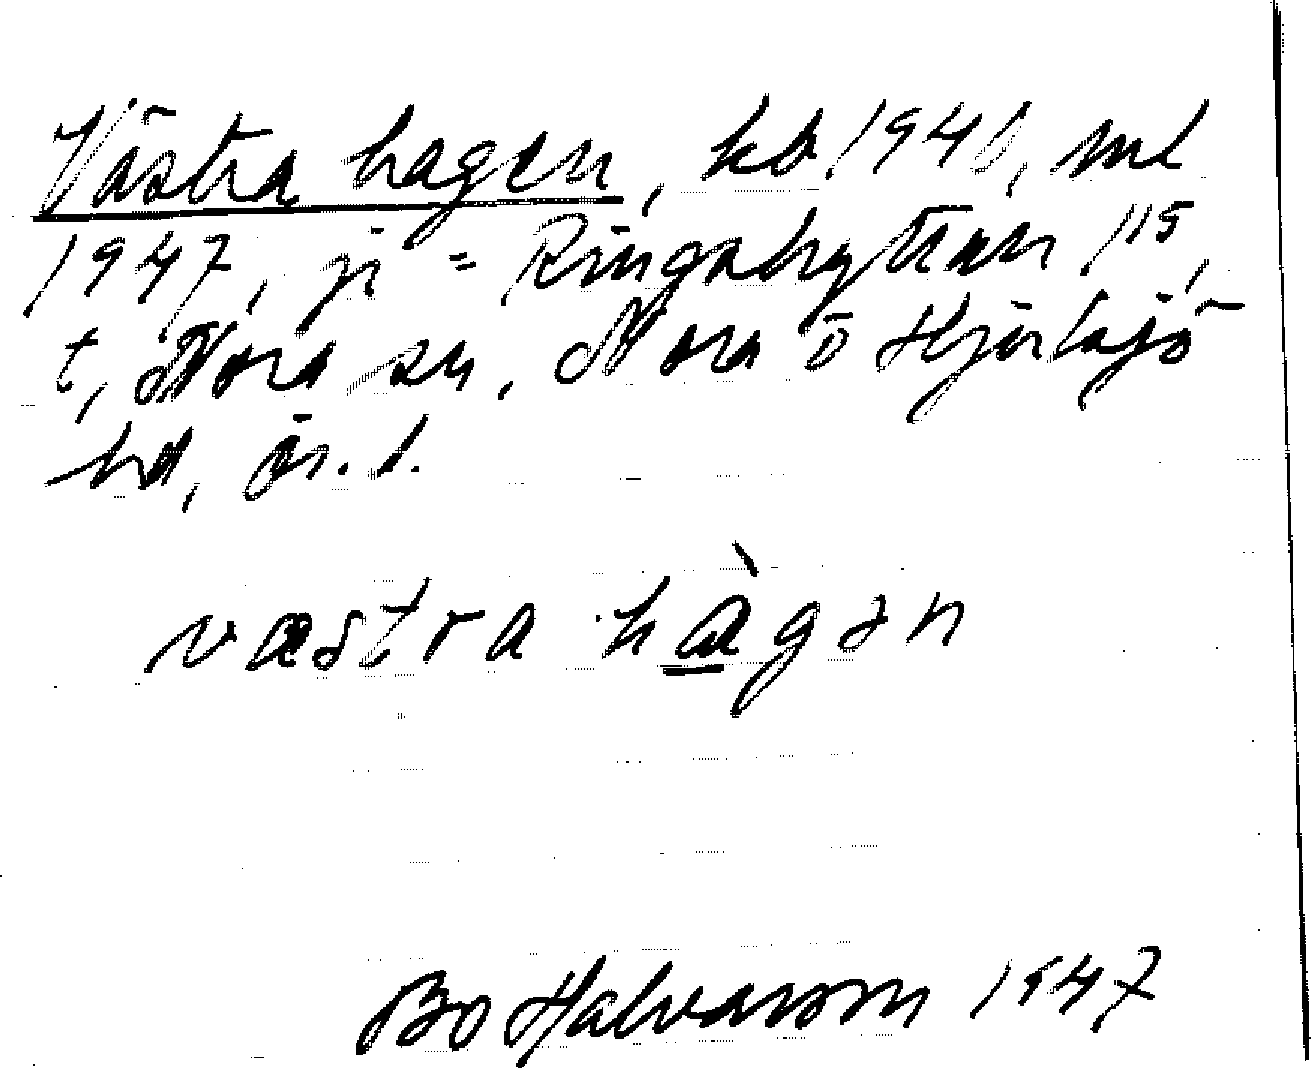 Västra hagen, kb 1940, ml
1947, ji = Ringshyttan 1¹⁵,
t, Nora sn, Nora o Hjulsjö
hd, ör. l.
væstra hàgən
Bo Halvarson 1947